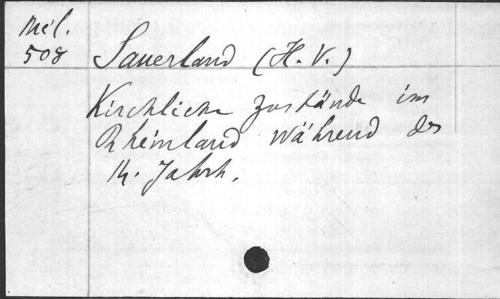 Mél.
508 Sauerland (H. V.)
Kirchliche Zustände im
Rheinland während des
14. Jahrh.